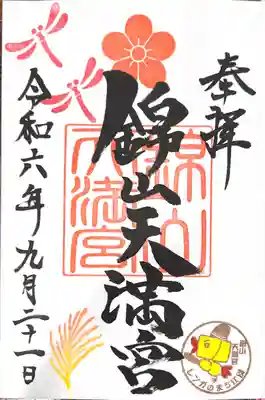 奉拝
錦山天満宮
令和六年九月二十一日
錦山天満宮
錦山
天満宮
レンガのまち江別